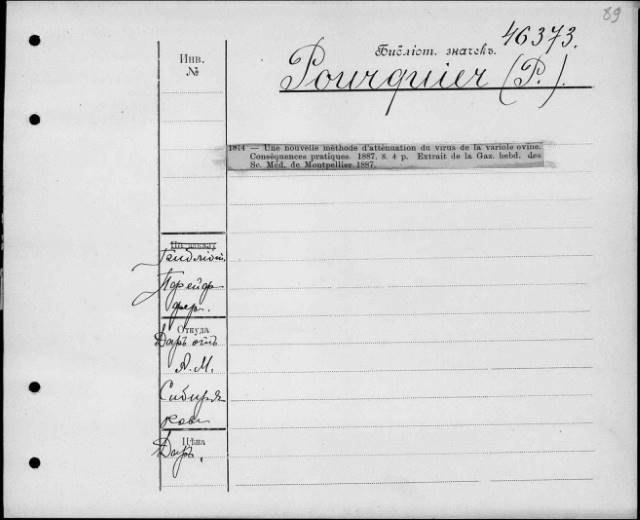 89
Библіот. значекъ. 46373.
Инв.
№
Pourquier (P.).
1814 — Une nouvelle méthode d'atténuation du virus de la variole ovine.
Conséquences pratiques. 1887. 8. 4 p. Extrait de la Gaz. hebd. des
Sc. Méd. de Montpellier 1887.
Пфейф-
фер.
Откуда
Даръ отъ
А. М.
Сибиря-
кова
Цѣна
Даръ.